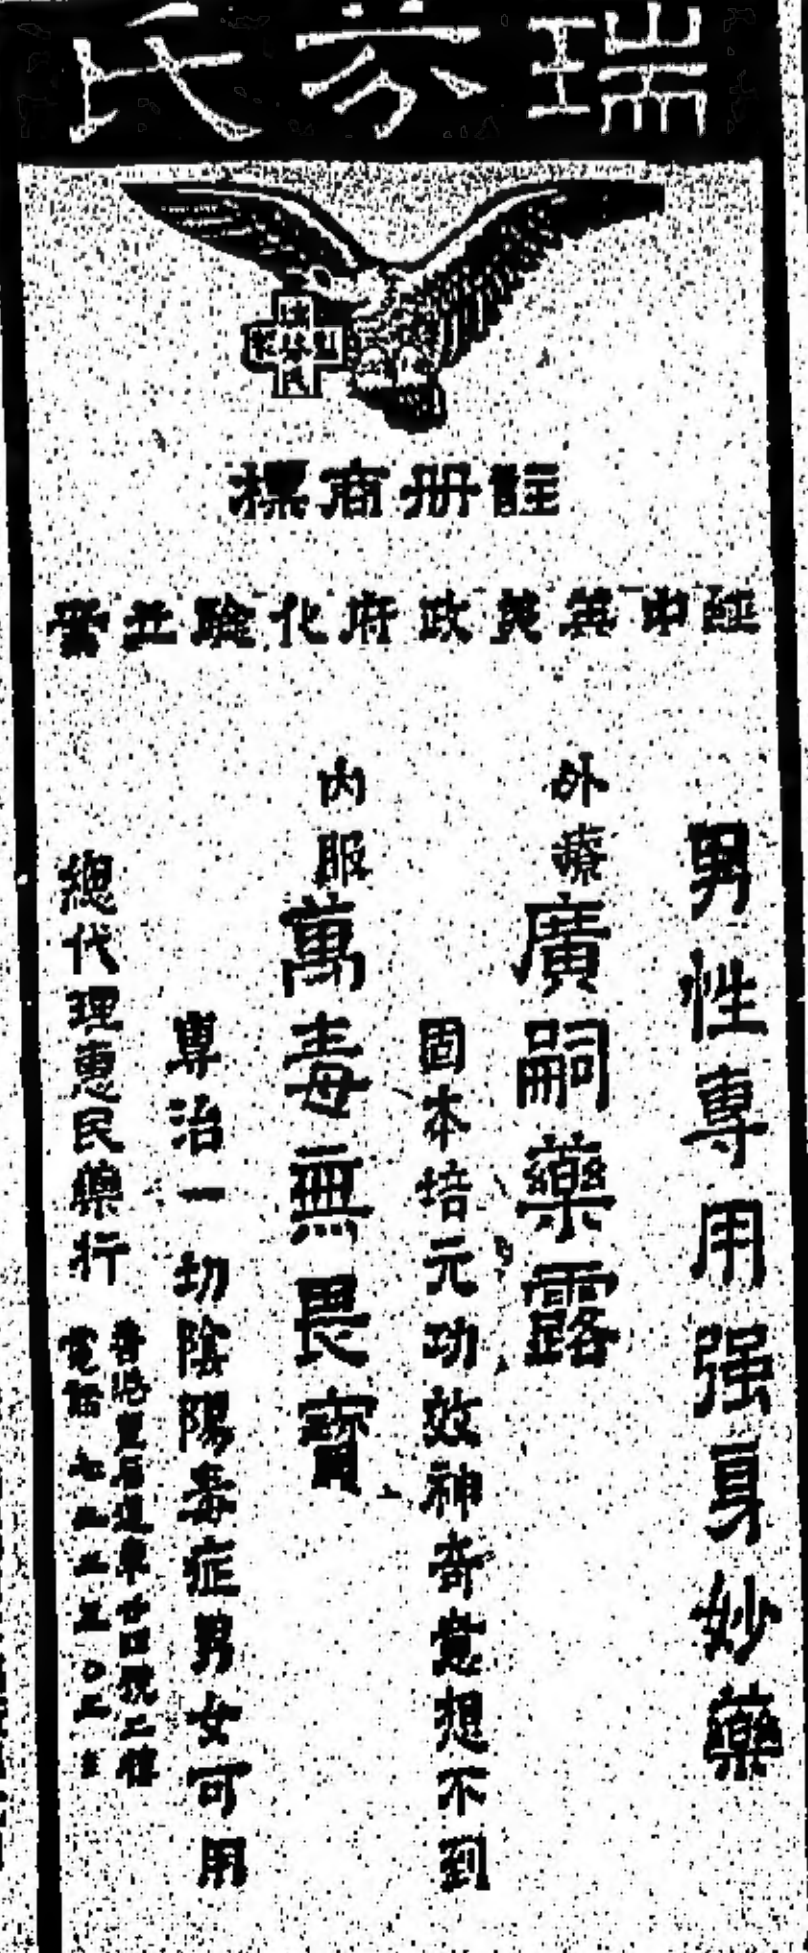 瑞芬氏
瑞芬氏
註册商標
經中英美政府化驗
男性專用强身妙藥
外療廣嗣藥露
固本培元功效神奇意想不到
內服萬毒無畏寶
專治一切陰陽毒症男女可用
總代理惠民藥行
香港皇后道東號二樓
電話